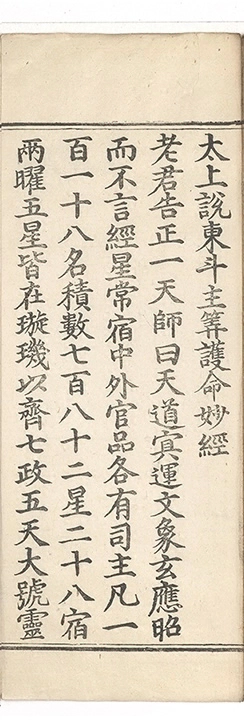 太上說東斗主筭護命妙經
老君告正一天師曰天道㝠運文象玄應昭
而不言經星常宿中外官品各有司主凡一
百一十八名積數七百八十二星二十八宿
兩曜五星皆在璇璣以齊七政五天大號靈